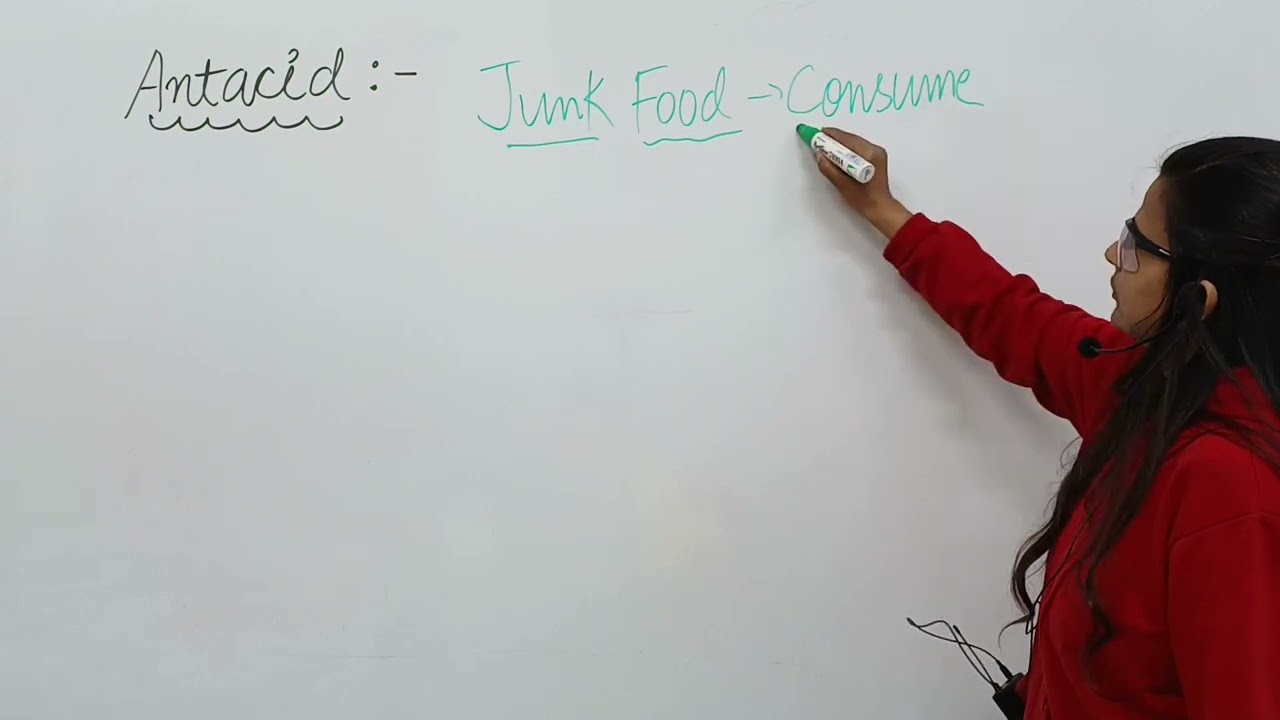 Antacid :- Junk Food → Consume